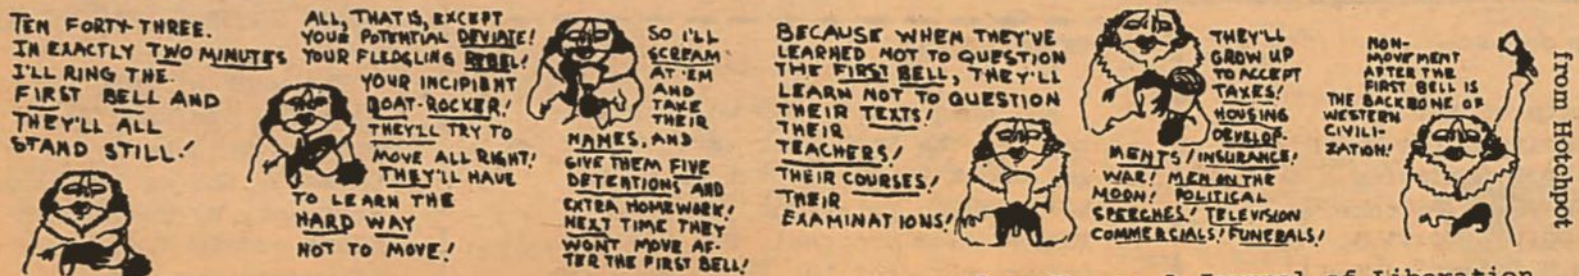 TEN FORTY-THREE.
IN EXACTLY TWO MINUTES
I'LL RING THE
FIRST BELL AND
THEY'LL ALL
STAND STILL!
ALL, THAT IS, EXCEPT
YOUR POTENTIAL DEVIATE!
YOUR FLEDGLING REBEL!
YOUR INCIPIENT
BOAT-ROCKER!
THEY'LL TRY TO
MOVE ALL RIGHT!
THEY'LL HAVE
TO LEARN THE
HARD WAY
NOT TO MOVE!
SO I'LL
SCREAM
AT 'EM
AND
TAKE
THEIR
NAMES, AND
GIVE THEM FIVE
DETENTIONS AND
EXTRA HOMEWORK!
NEXT TIME THEY
WONT MOVE AF-
TER THE FIRST BELL!
BECAUSE WHEN THEY'VE
LEARNED NOT TO QUESTION
THE FIRST BELL, THEY'LL
LEARN NOT TO QUESTION
THEIR TEXTS!
THEIR
TEACHERS!
THEIR COURSES!
THEIR
EXAMINATIONS!
THEY'LL
GROW UP
TO ACCEPT
TAXES!
HOUSING
DEVELOP-
MENTS! INSURANCE!
WAR! MEN ON THE
MOON! POLITICAL
SPEECHES! TELEVISION
COMMERCIALS! FUNERALS!
NON-
MOVEMENT
AFTER THE
FIRST BELL IS
THE BACKBONE OF
WESTERN
CIVILI-
ZATION!
from Hotchpot
Journal of Liberation